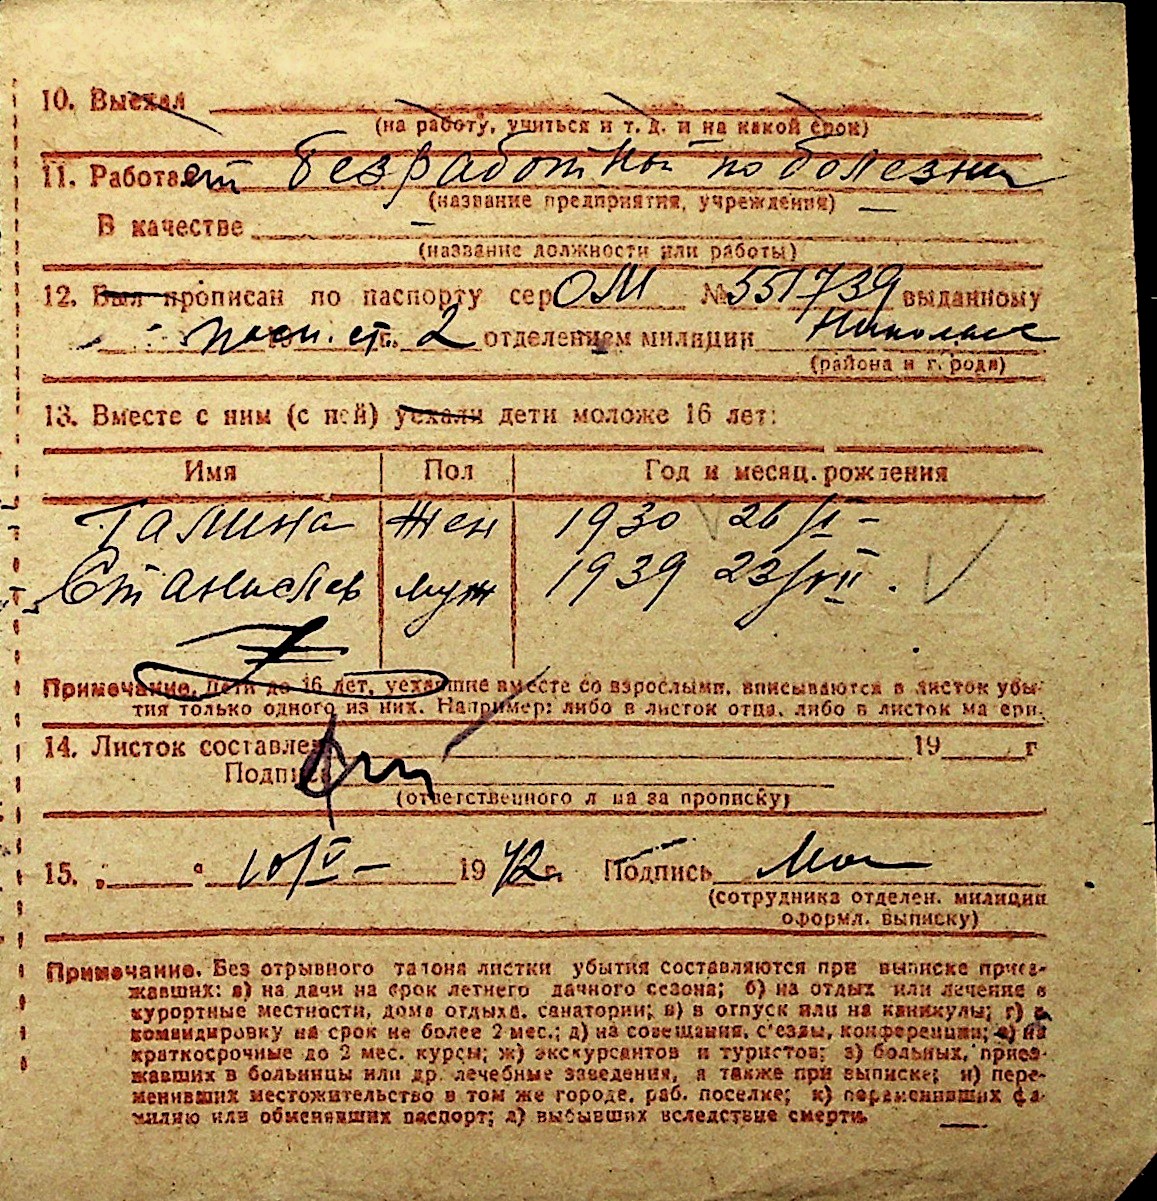 10. Выехал
(на работу, учиться и т. д. и на какой срок)
11. Работает безработный по болезни
(название предприятия, учреждения)
В качестве —
(название должности или работы)
12. Был прописан по паспорту сер ОМ № 551739 выданному
ст. 2 отделением милиции Николаев
(района и города)
13. Вместе с ним (с ней) уехали дети моложе 16 лет:
Имя Пол Год и месяц рождения
Галина жен 1930 26/II –
Станислав муж 1939 23/VII.
Примечание. Дети до 16 лет, уехавшие вместе со взрослыми, вписываются в листок убы-
тия только одного из них. Например: либо в листок отца, либо в листок матери.
14. Листок составлен 19 г
Подпись
(ответственного лица за прописку)
15. „ “ 10/V – 1942 г. Подпись
(сотрудника отделен. милиции
оформл. выписку)
Примечание. Без отрывного талона листки убытия составляются при выписке приез-
жавших: а) на дачи на срок летнего дачного сезона; б) на отдых или лечение в
курортные местности, дома отдыха, санатории; в) в отпуск или на каникулы; г) в
командировку на срок не более 2 мес.; д) на совещания, с'езды, конференции; е) на
краткосрочные до 2 мес. курсы; ж) экскурсантов и туристов; з) больных, приез-
жавших в больницы или др. лечебные заведения, а также при выписке; и) пере-
менивших местожительство в том же городе, раб. поселке; к) переменивших фа-
милию или обменявших паспорт; л) выбывших вследствие смерти.